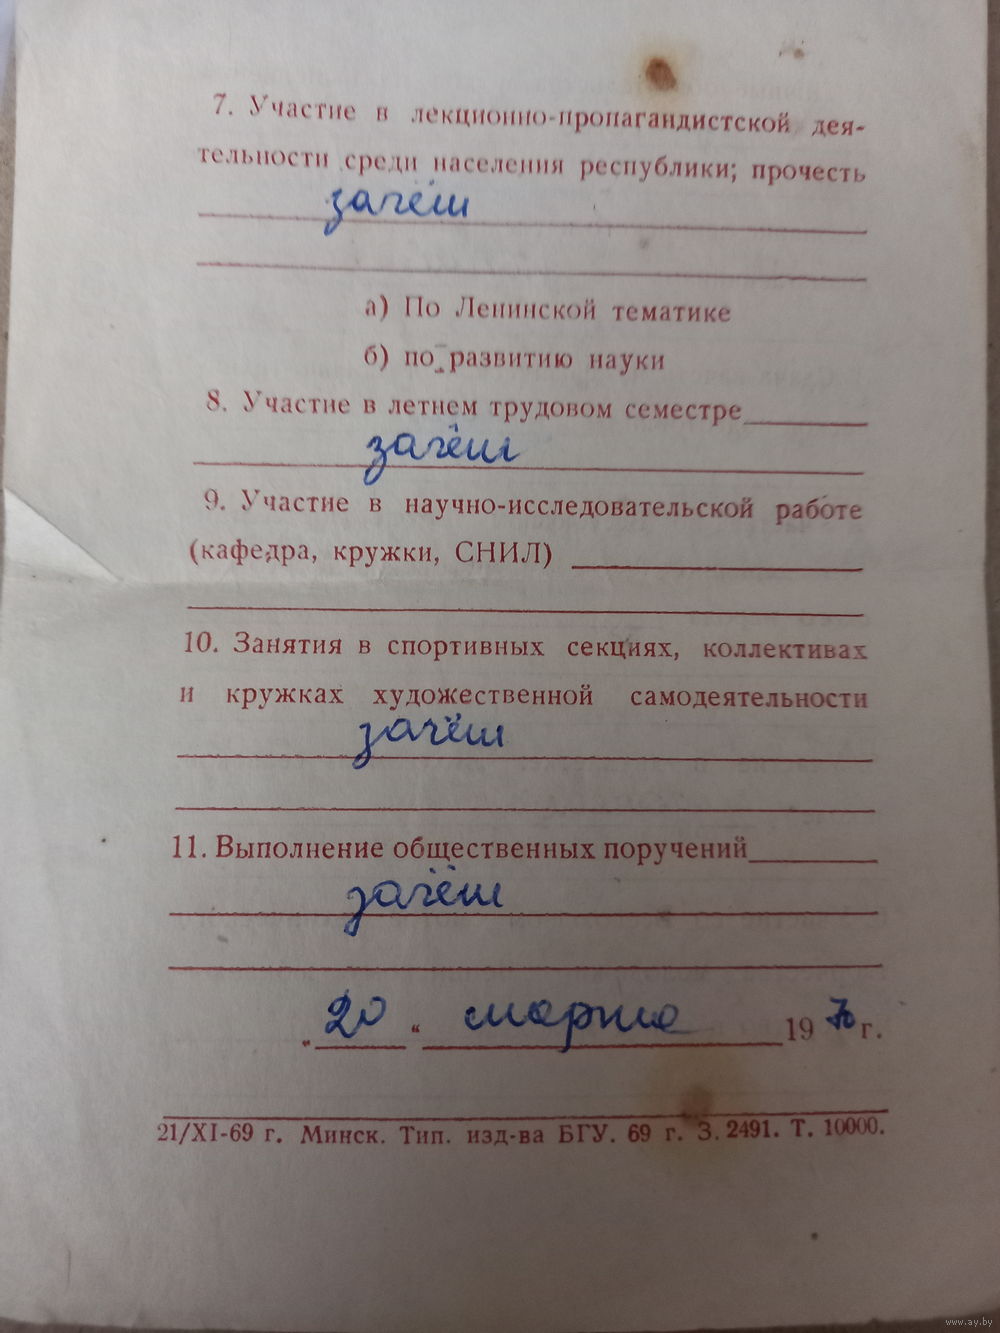 7. Участие в лекционно-пропагандистской дея-
тельности среди населения республики; прочесть
зачёт
а) По Ленинской тематике
б) по развитию науки
8. Участие в летнем трудовом семестре
зачёт
9. Участие в научно-исследовательской работе
(кафедра, кружки, СНИЛ)
10. Занятия в спортивных секциях, коллективах
и кружках художественной самодеятельности
зачёт
11. Выполнение общественных поручений
зачёт
„20“ марта 1970 г.
21/XI-69 г. Минск. Тип. изд-ва БГУ. 69 г. З. 2491. Т. 10000.
www.ay.by